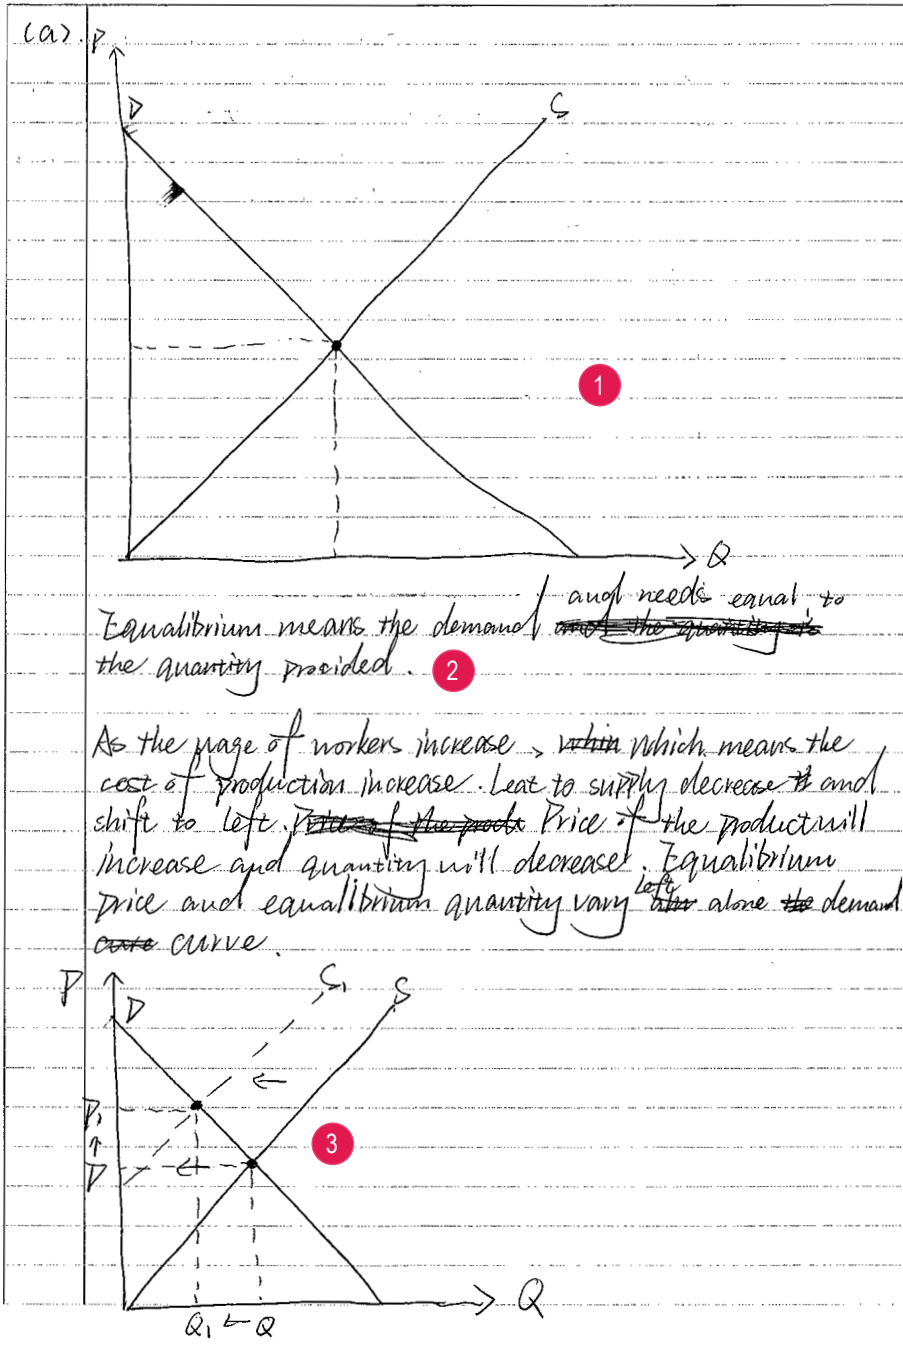 (a). P
D
S
1
Q
and needs equal to
Equalibrium means the demand
the quantity provided. 2
As the wage of workers increase, which means the
cost of production increase. Leat to supply decrease and
shift to left. Price of the product will
increase and quantity will decrease. Equalibrium
price and equalibrium quantity vary left alone demand
curve.
P
D
S1
S
P1
3
P
Q
Q1 ← Q